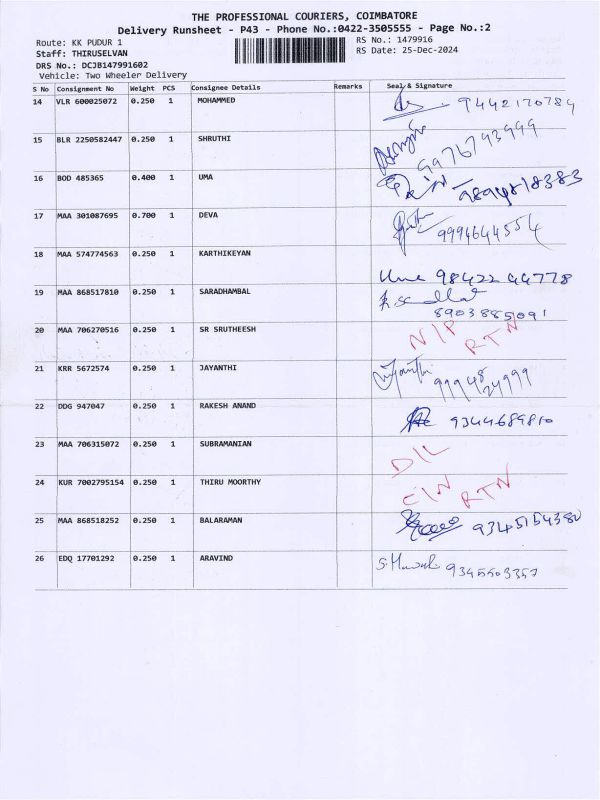 THE PROFESSIONAL COURIERS, COIMBATORE
Delivery Runsheet - P43 - Phone No.:0422-3505555 - Page No.:2
Route: KK PUDUR 1 RS No.: 1479916
Staff: THIRUSELVAN RS Date: 25-Dec-2024
DRS No.: DCJB147991602
Vehicle: Two Wheeler Delivery
S No Consignment No Weight PCS Consignee Details Remarks Seal & Signature
14 VLR 600025072 0.250 1 MOHAMMED 9442170784
15 BLR 2250582447 0.250 1 SHRUTHI 9976793999
16 BOD 485365 0.400 1 UMA
17 MAA 301087695 0.700 1 DEVA 9994644554
18 MAA 574774563 0.250 1 KARTHIKEYAN Uma 98422 44778
19 MAA 868517810 0.250 1 SARADHAMBAL 8903885091
20 MAA 706270516 0.250 1 SR SRUTHEESH N/P RTN
21 KRR 5672574 0.250 1 JAYANTHI 99948 24999
22 DDG 947047 0.250 1 RAKESH ANAND 9344689810
23 MAA 706315072 0.250 1 SUBRAMANIAN D/L
24 KUR 7002795154 0.250 1 THIRU MOORTHY C/N RTN
25 MAA 868518252 0.250 1 BALARAMAN 9345154380
26 EDQ 17701292 0.250 1 ARAVIND 9345503357